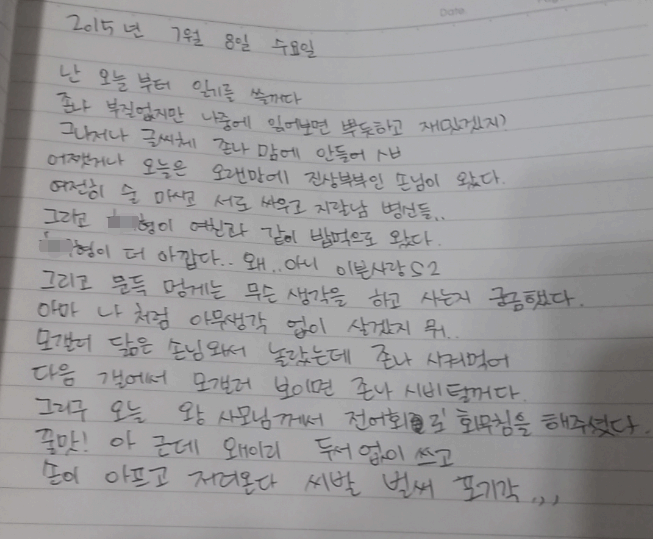 Date.
2015년 7월 8일 수요일
난 오늘 부터 일기를 쓸꺼다
존나 부질없지만 나중에 읽어보면 뿌듯하고 재밌겠지?
그나저나 글씨체 존나 맘에 안들어 ㅅㅂ
어쨌거나 오늘은 오랜만에 진상부부인 손님이 왔다.
여전히 술 마시고 서로 싸우고 지랄남 병신들..
그리고 형이 여친과 같이 밥먹으로 왔다.
형이 더 아깝다.. 왜..아니 이쁜사랑S2
그리고 문득 멍게는 무슨 생각을 하고 사는지 궁금했다.
아마 나 처럼 아무생각 없이 살겠지 뭐..
모갤러 닮은 손님와서 놀랐는데 존나 시켜먹어
다음 갤에서 모갤러 보이면 존나 시비털꺼다.
그리구 오늘 왕 사모님께서 전어회로 회무침을 해주셨다.
꿀맛! 아 근데 왜이리 두서 없이 쓰고
손이 아프고 저려온다 씨발 벌써 포기각,,,